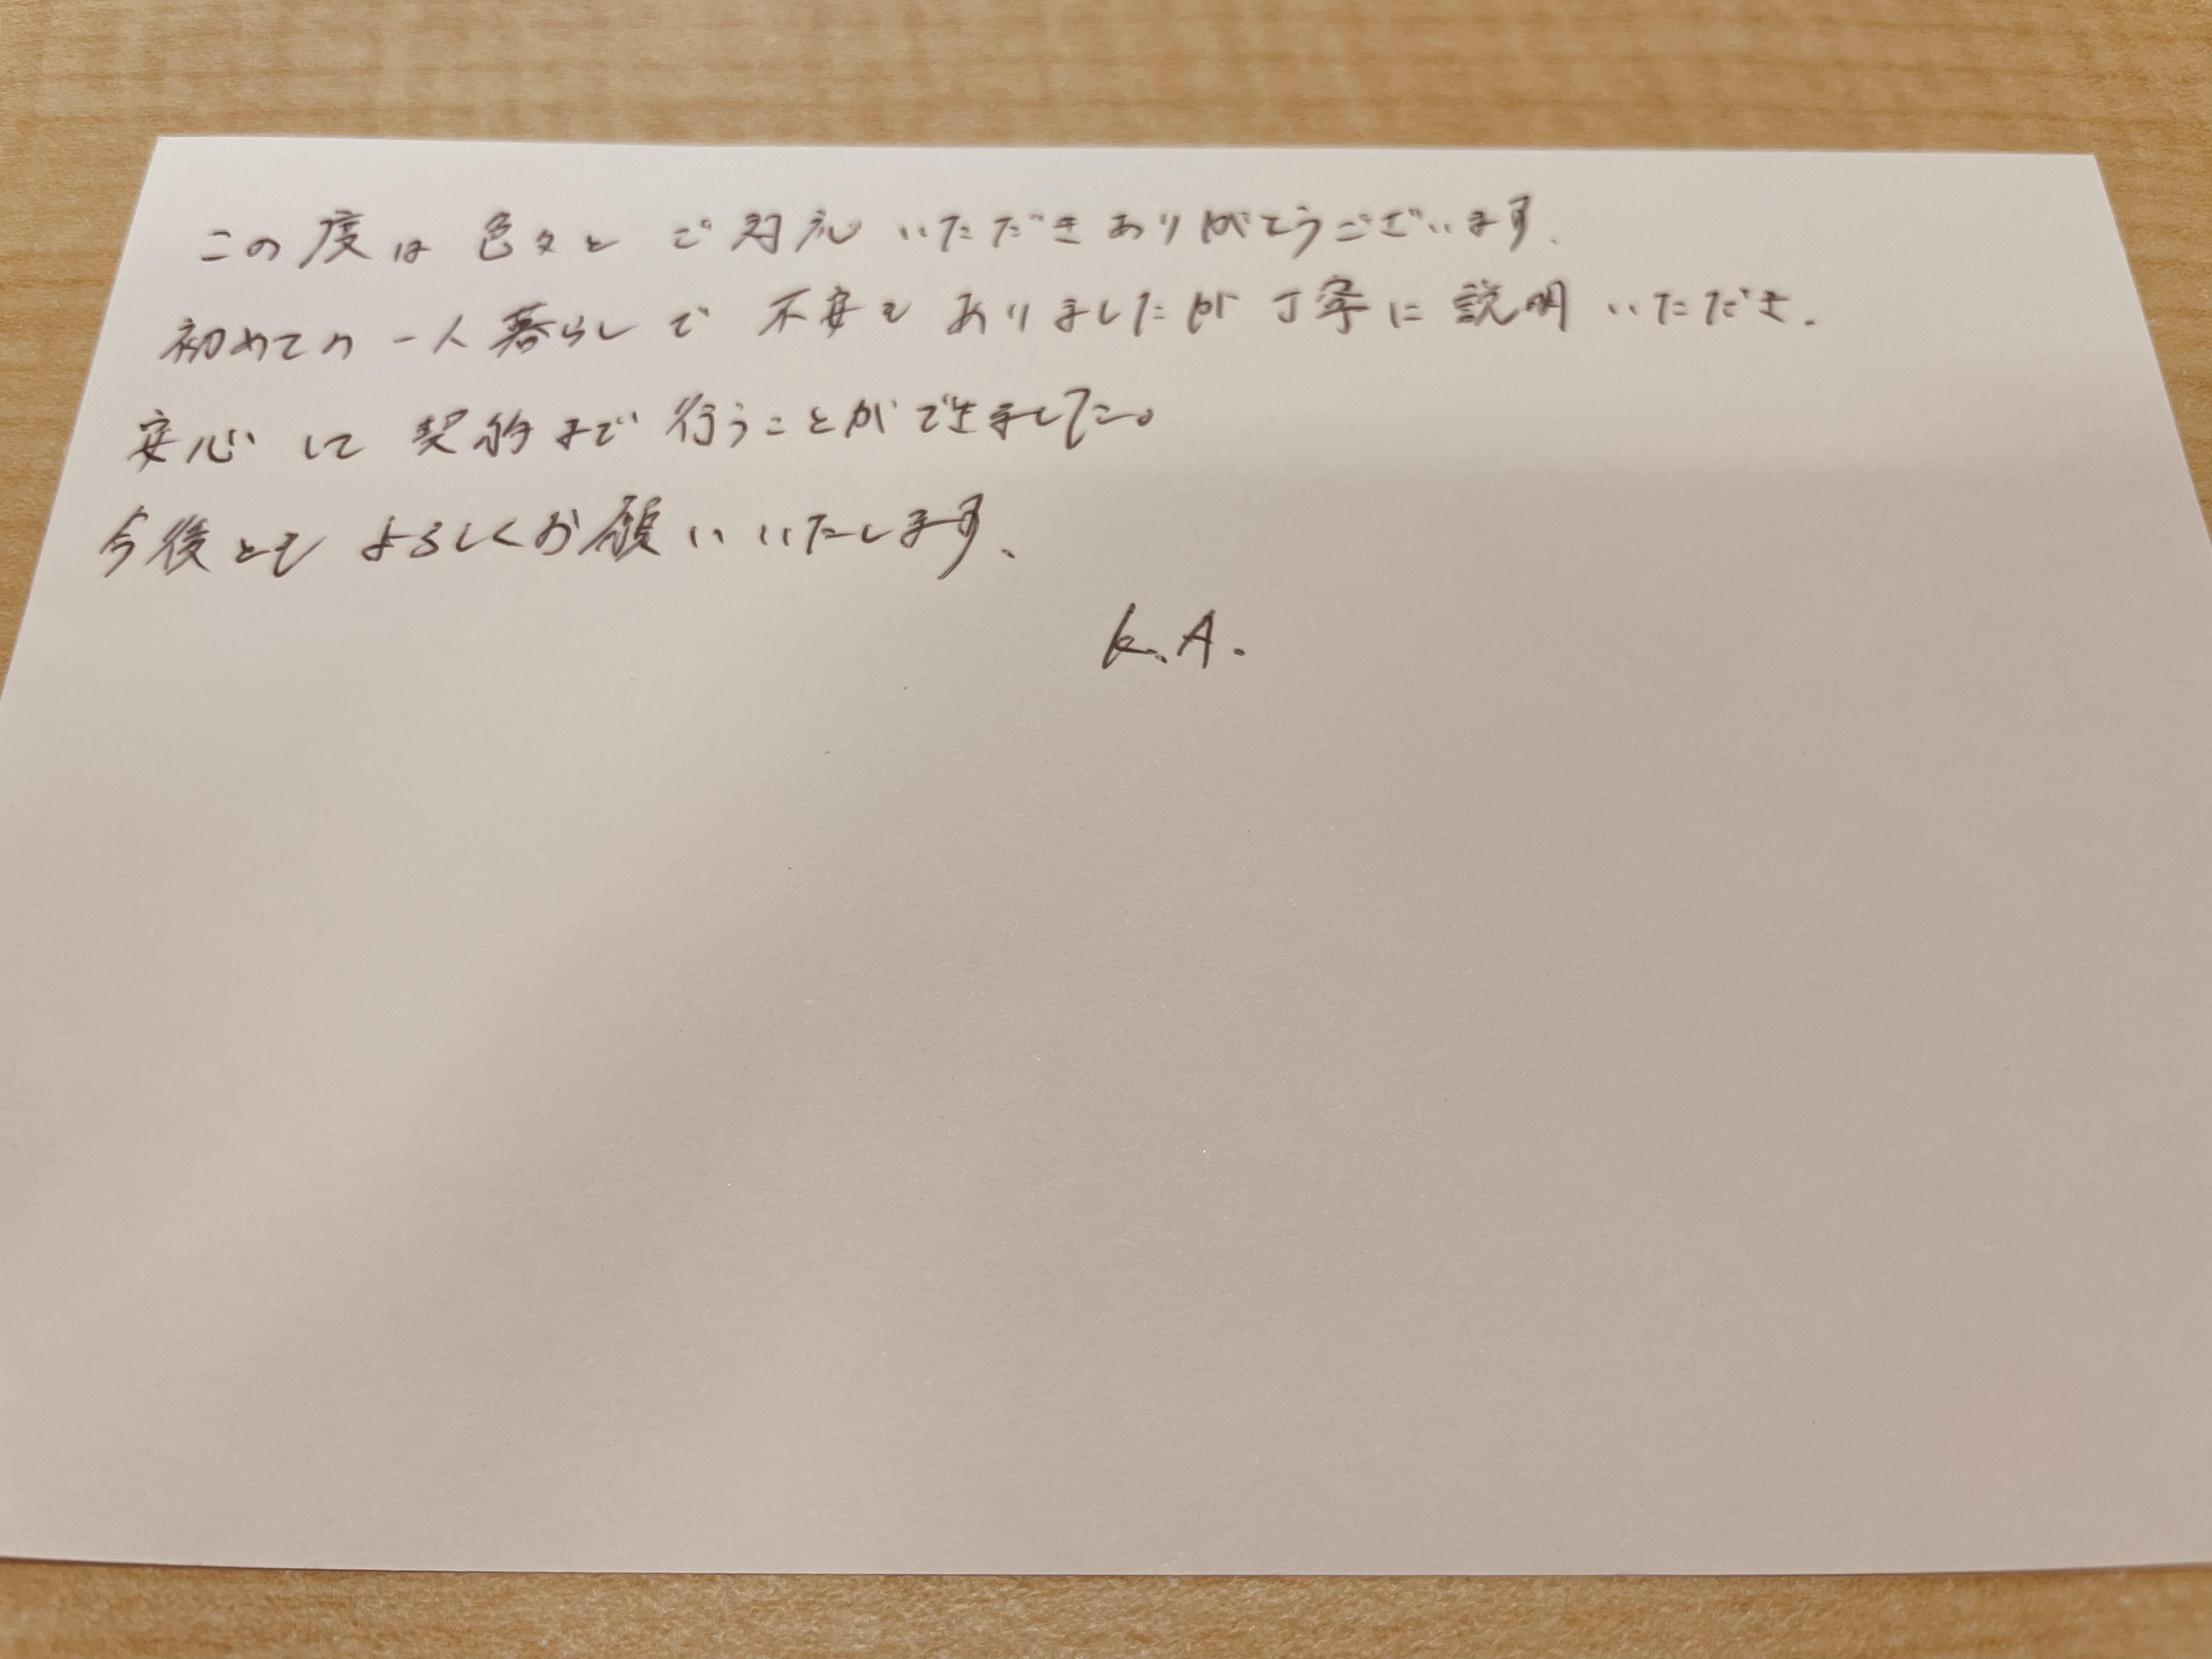 この度は色々とご対応いただきありがとうございます.
初めての一人暮らしで不安もありましたが丁寧に説明いただき.
安心して契約まで行うことができました。
今後ともよろしくお願いいたします、
K.A.